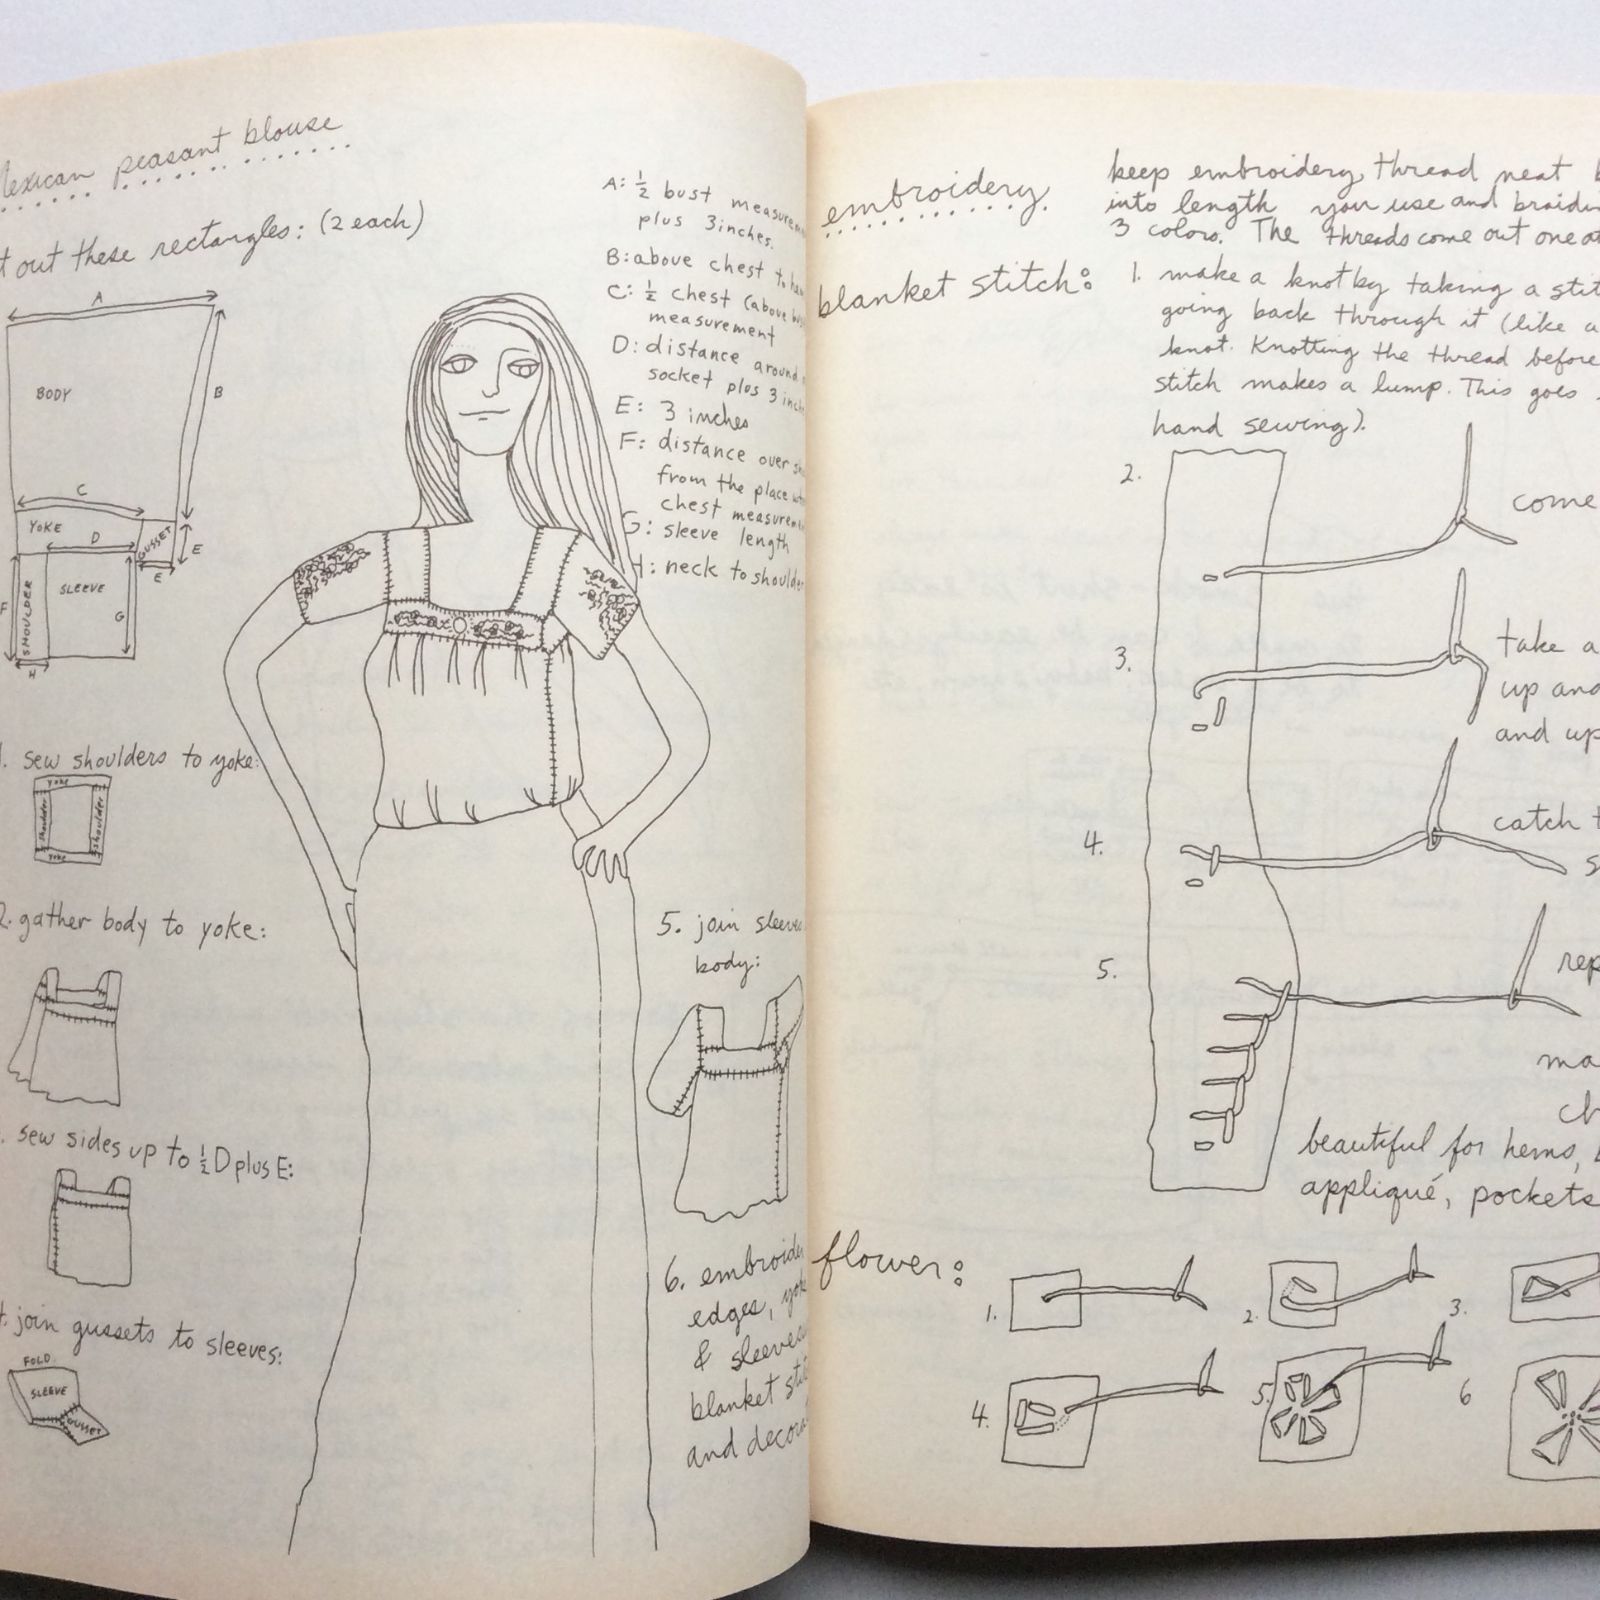 Mexican peasant blouse
out these rectangles: (2 each)
A
BODY
B
C
YOKE
D
GUSSET
E
E
SHOULDER
SLEEVE
F
G
H
A: ½ bust
plus 3 inches.
B: above chest to
C: ½ chest (above
measurement
D: distance around
socket plus 3
E: 3 inches
F: distance over
from the place
chest
G: sleeve length
H: neck to shoulder
1. sew shoulders to yoke:
yoke
shoulder
shoulder
yoke
2. gather body to yoke:
sew sides up to ½ D plus E:
join gussets to sleeves:
FOLD
SLEEVE
GUSSET
5. join sleeves
body:
6.
edges,
& sleeves
blanket
and
embroidery
keep embroidery thread neat
into length you use and
3 colors. The threads come out one
blanket stitch:
1. make a knot by taking a
going back through it (like a
knot. Knotting the thread before
stitch makes a lump. This goes
hand sewing).
2.
come
3.
take a
up and
and up
4.
catch
5.
beautiful for hems,
appliqué, pockets
flower:
1.
2.
3.
4.
5.
6